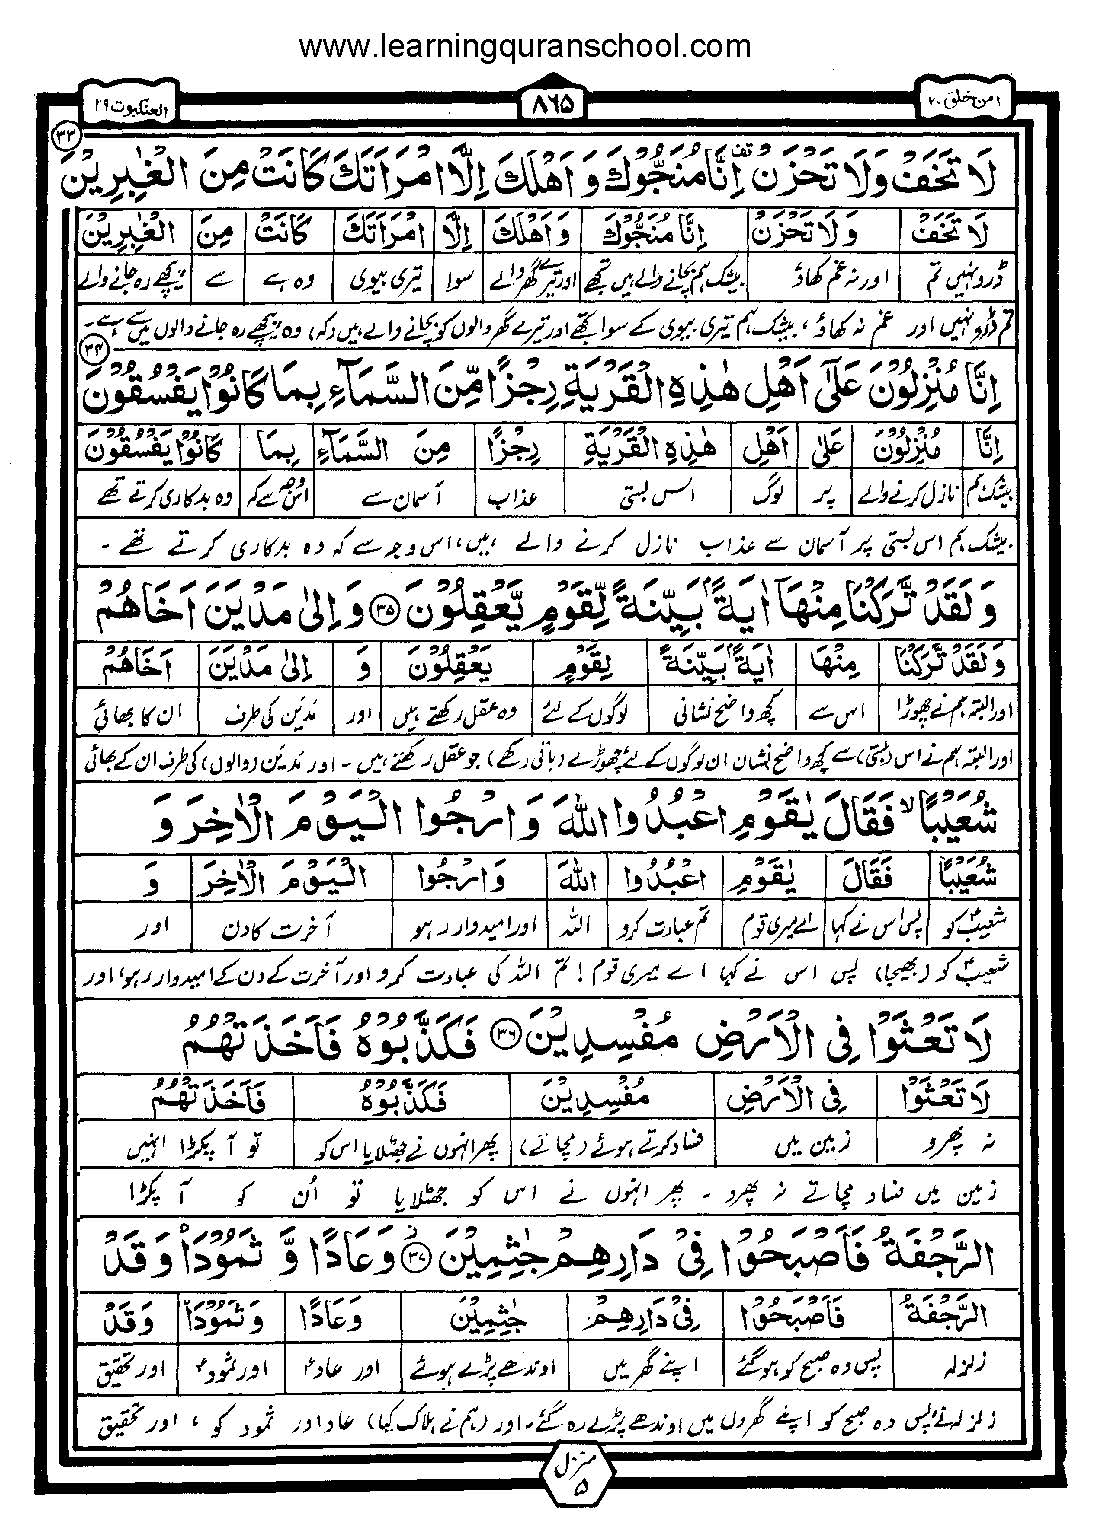 www.learningquranschool.com
امن خلق ۲۰ ۸۶۵ العنکبوت ۲۹
لَا تَخَفْ وَلَا تَحْزَنْ اِنَّا مُنَجُّوْكَ وَ اَهْلَكَ اِلَّا امْرَاَتَكَ كَانَتْ مِنَ الْغٰبِرِيْنَ ۳۳
لَا تَخَفْ وَلَا تَحْزَنْ اِنَّا مُنَجُّوْكَ وَاَهْلَكَ اِلَّا امْرَاَتَكَ كَانَتْ مِنَ الْغٰبِرِيْنَ
ڈرو نہیں تم اور نہ غم کھاؤ بیشک ہم بچانے والے ہیں تجھے اور تیرے گھر والے سوا تیری بیوی وہ ہے سے پیچھے رہ جانے والے
تم ڈرو نہیں اور غم نہ کھاؤ، بیشک ہم تیری بیوی کے سوا تجھے اور تیرے گھر والوں کو بچانے والے ہیں (کہ) وہ پیچھے رہ جانے والوں میں سے ہے۔
اِنَّا مُنْزِلُوْنَ عَلٰٓى اَهْلِ هٰذِهِ الْقَرْيَةِ رِجْزًا مِّنَ السَّمَآءِ بِمَا كَانُوْا يَفْسُقُوْنَ ۳۴
اِنَّا مُنْزِلُوْنَ عَلٰى اَهْلِ هٰذِهِ الْقَرْيَةِ رِجْزًا مِنَ السَّمَآءِ بِمَا كَانُوْا يَفْسُقُوْنَ
بیشک ہم نازل کرنے والے پر لوگ اس بستی عذاب آسمان سے اس وجہ سے کہ وہ بدکاری کرتے تھے
بیشک ہم اس بستی پر آسمان سے عذاب نازل کرنے والے ہیں، اس وجہ سے کہ وہ بدکاری کرتے تھے۔
وَلَقَدْ تَّرَكْنَا مِنْهَآ اٰيَةًۢ بَيِّنَةً لِّقَوْمٍ يَّعْقِلُوْنَ ۳۵ وَاِلٰى مَدْيَنَ اَخَاهُمْ
وَلَقَدْ تَّرَكْنَا مِنْهَا اٰيَةًۢ بَيِّنَةً لِقَوْمٍ يَعْقِلُوْنَ وَ اِلٰى مَدْيَنَ اَخَاهُمْ
اور البتہ ہم نے چھوڑا اس سے کچھ واضح نشانی لوگوں کے لئے وہ عقل رکھتے ہیں اور مدین کی طرف ان کا بھائی
اور البتہ ہم نے اس (بستی) سے کچھ واضح نشان ان لوگوں کے لئے چھوڑے (باقی رکھے) جو عقل رکھتے ہیں۔ اور مدین (والوں) کی طرف ان کے بھائی
شُعَيْبًا ۙ فَقَالَ يٰقَوْمِ اعْبُدُوا اللّٰهَ وَارْجُوا الْيَوْمَ الْاٰخِرَ وَ
شُعَيْبًا فَقَالَ يٰقَوْمِ اعْبُدُوا اللّٰهَ وَارْجُوا الْيَوْمَ الْاٰخِرَ وَ
شعیبؑ کو پس اس نے کہا اے میری قوم تم عبادت کرو اللہ اور امیدوار رہو آخرت کا دن اور
شعیبؑ کو (بھیجا) پس اس نے کہا اے میری قوم! تم اللہ کی عبادت کرو اور آخرت کے دن کے امیدوار رہو، اور
لَا تَعْثَوْا فِى الْاَرْضِ مُفْسِدِيْنَ ۳۶ فَكَذَّبُوْهُ فَاَخَذَتْهُمُ
لَا تَعْثَوْا فِى الْاَرْضِ مُفْسِدِيْنَ فَكَذَّبُوْهُ فَاَخَذَتْهُمُ
نہ پھرو زمین میں فساد کرتے ہوئے (مچاتے) پھر انہوں نے جھٹلایا اس کو تو آ پکڑا انہیں
زمین میں فساد مچاتے نہ پھرو۔ پھر انہوں نے اس کو جھٹلایا تو اُن کو آ پکڑا
الرَّجْفَةُ فَاَصْبَحُوْا فِىْ دَارِهِمْ جٰثِمِيْنَ ۳۷ وَعَادًا وَّ ثَمُوْدَا۟ وَقَدْ
الرَّجْفَةُ فَاَصْبَحُوْا فِىْ دَارِهِمْ جٰثِمِيْنَ وَعَادًا وَثَمُوْدَا۟ وَقَدْ
زلزلہ پس وہ صبح کو ہو گئے اپنے گھر میں اوندھے پڑے ہوئے اور عاد اور ثمود اور تحقیق
زلزلہ نے، پس وہ صبح کو اپنے گھروں میں اوندھے پڑے رہ گئے۔ اور (ہم نے ہلاک کیا) عاد اور ثمود کو، اور تحقیق
منزل ۵